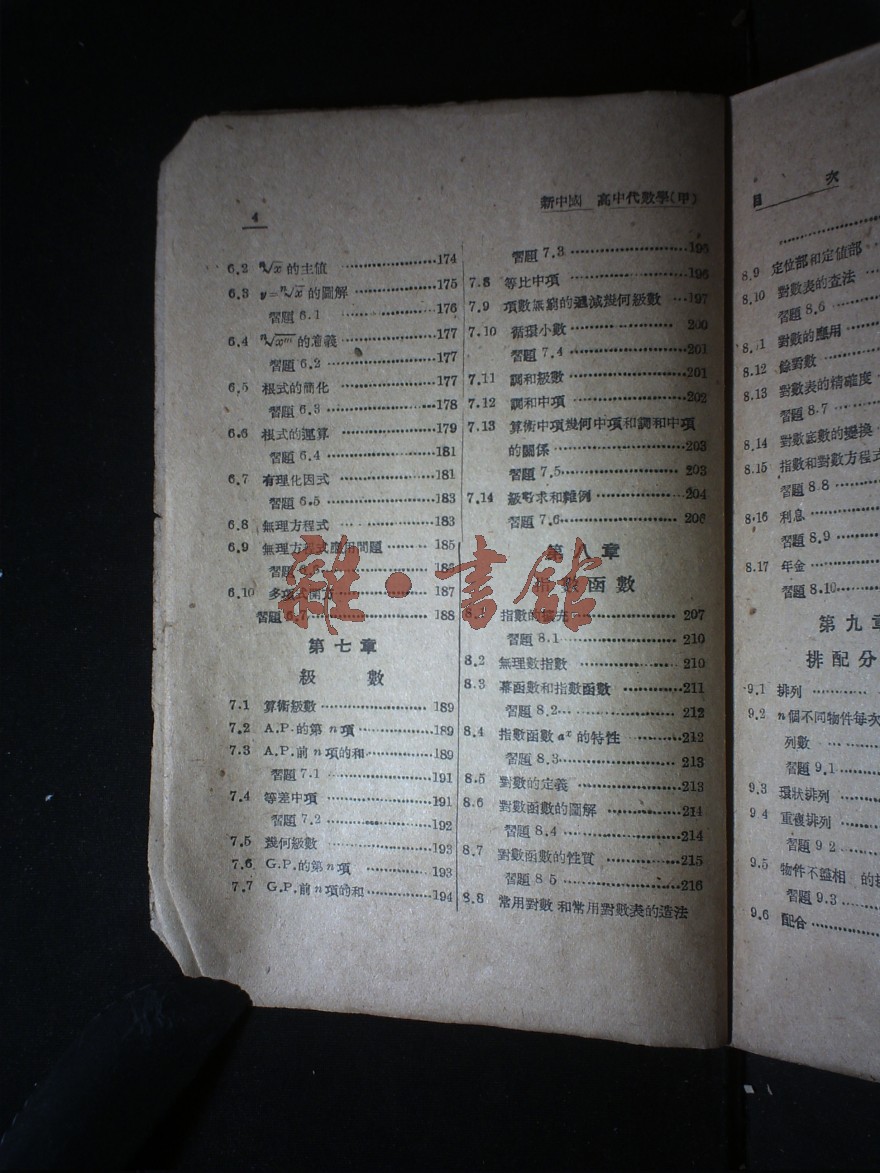 4
新中國 高中代數學(甲)
6.2 ⁿ√x 的主値 ……174
6.3 y=ⁿ√x 的圖解 ……175
習題 6.1 ……176
6.4 ⁿ√xᵐ 的意義……177
習題 6.2 ……177
6.5 根式的簡化 ……177
習題 6.3 ……178
6.6 根式的運算 ……179
習題 6.4 ……181
6.7 有理化因式 ……181
習題 6.5 ……183
6.8 無理方程式 ……183
6.9 無理方程式應用問題 ……185
習題 6.6
6.10 多項式開方 ……187
習題 6.7 ……188
第七章
級數
7.1 算術級數 ……189
7.2 A.P. 的第 n 項 ……189
7.3 A.P. 前 n 項的和 ……189
習題 7.1 ……191
7.4 等差中項 ……191
習題 7.2 ……192
7.5 幾何級數 ……193
7.6 G.P. 的第 n 項 ……193
7.7 G.P. 前 n 項的和 ……194
習題 7.3 ……195
7.8 等比中項 ……196
7.9 項數無窮的遞減幾何級數 …197
7.10 循環小數 ……200
習題 7.4 ……201
7.11 調和級數 ……201
7.12 調和中項 ……202
7.13 算術中項幾何中項和調和中項
的關係 ……203
習題 7.5 ……203
7.14 級數求和雜例 ……204
習題 7.6 ……206
第八章
指數函數
8.1 指數的擴充 ……207
習題 8.1 ……210
8.2 無理數指數 ……210
8.3 冪函數和指數函數 ……211
習題 8.2 ……212
8.4 指數函數 aˣ 的特性 ……212
習題 8.3 ……213
8.5 對數的定義 ……213
8.6 對數函數的圖解 ……214
習題 8.4 ……214
8.7 對數函數的性質 ……215
習題 8.5 ……216
8.8 常用對數和常用對數表的造法
目次
8.9 定位部和定値部
8.10 對數表的査法
習題 8.6
8.11 對數的應用
8.12 餘對數
8.13 對數表的精確度
習題 8.7
8.14 對數底數的變換
8.15 指數和對數方程式
習題 8.8
8.16 利息
習題 8.9
8.17 年金
習題 8.10
第九章
排配分
9.1 排列
9.2 n 個不同物件每次
列數
習題 9.1
9.3 環狀排列
9.4 重複排列
習題 9.2
9.5 物件不盡相 的
習題 9.3
9.6 配合
雜·書館